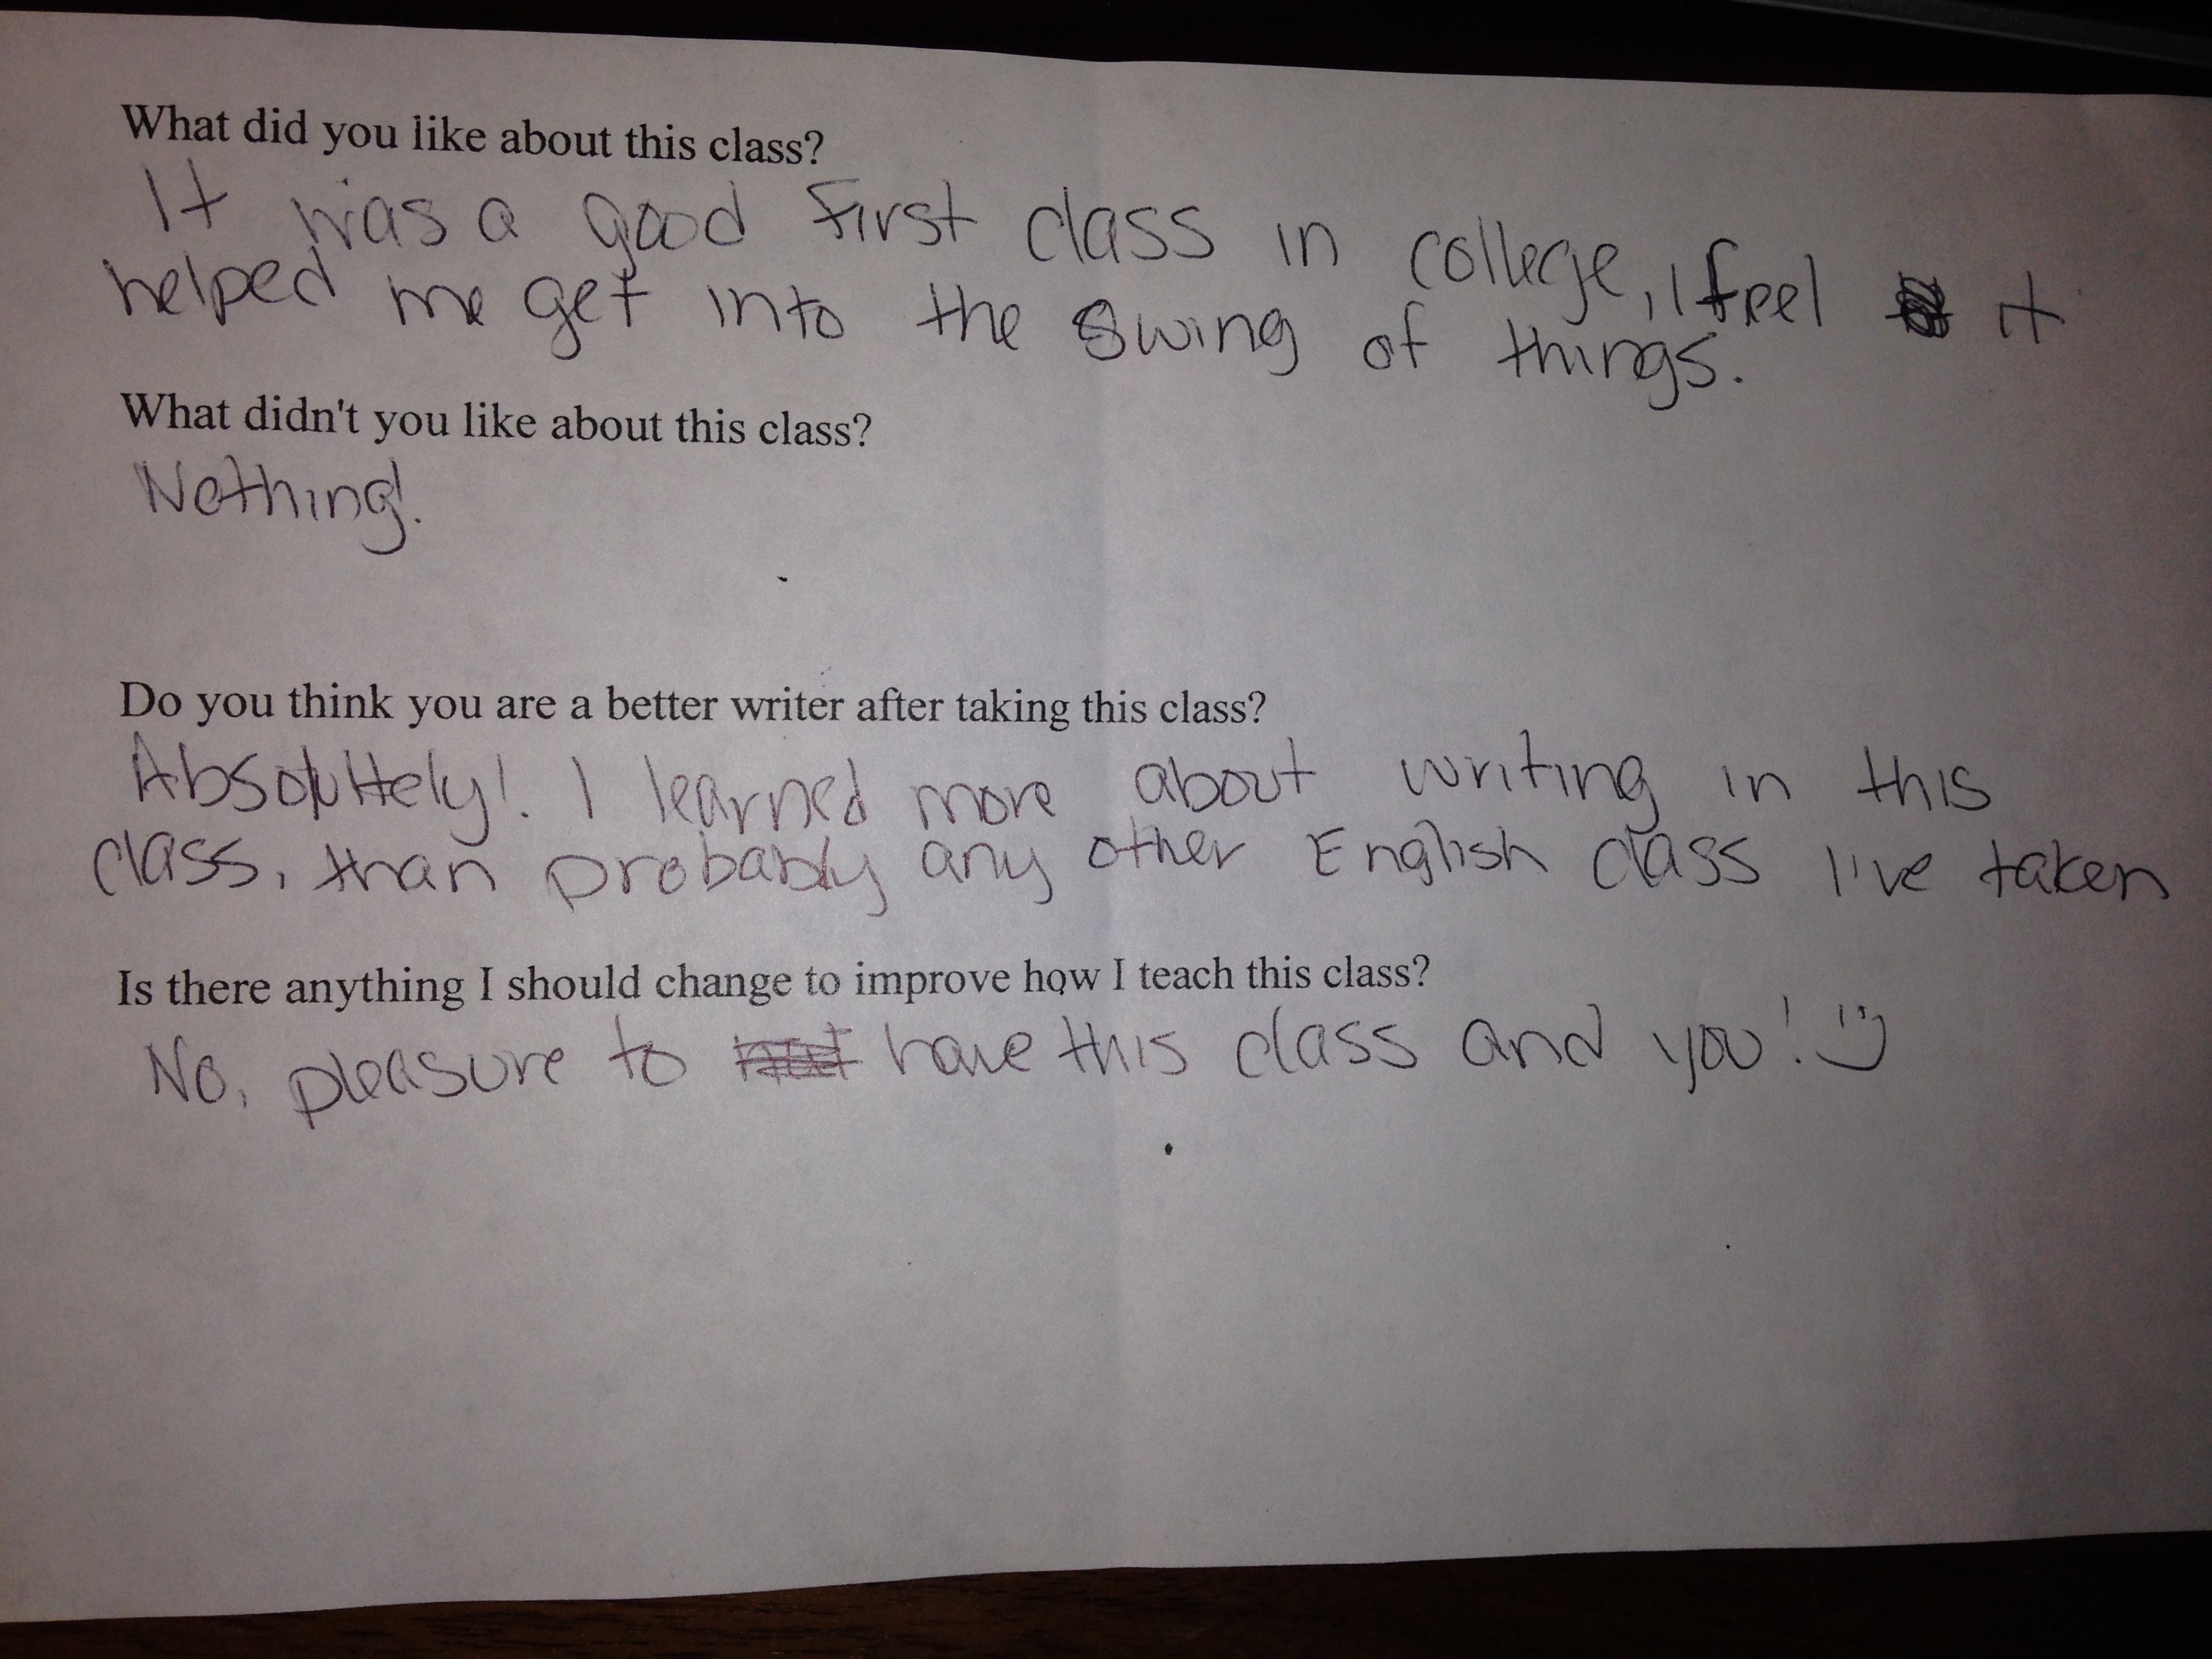 What did you like about this class?
It was a good first class in college, I feel it
helped me get into the swing of things.
What didn't you like about this class?
Nothing!
Do you think you are a better writer after taking this class?
Absoluttely! I learned more about writing in this
class, than probably any other English class I've taken
Is there anything I should change to improve how I teach this class?
No, pleasure to have this class and you! :)